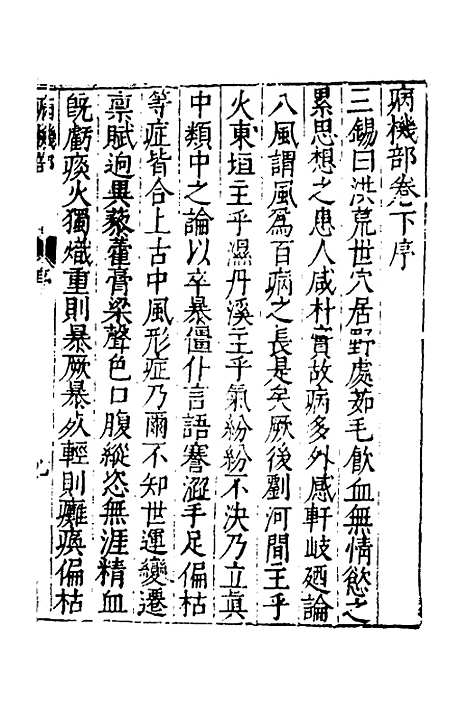 病機部卷下序
三錫曰洪荒世穴居野處茹毛飲血無情慾之
累思想之患人咸朴實故病多外感軒岐廼論
八風謂風爲百病之長是矣厥後劉河間主乎
火東垣主乎濕丹溪主乎氣紛紛不決乃立眞
中類中之論以卒暴僵仆言語謇澀手足偏枯
等症皆合上古中風形症乃爾不知世運變遷
禀賦逈異藜藿膏梁聲色口腹縱恣無涯精血
旣虧痰火獨熾重則暴厥暴死輕則癱瘓偏枯
病機部
序